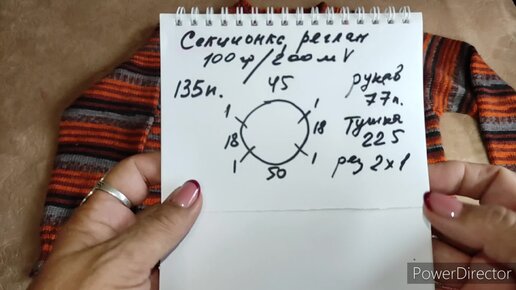 Секционка реглан
100гр/200м V
135п.
45
1
1
18
18
1
1
50
рукав
77п.
Тушка
225
рез 2х1
PowerDirector